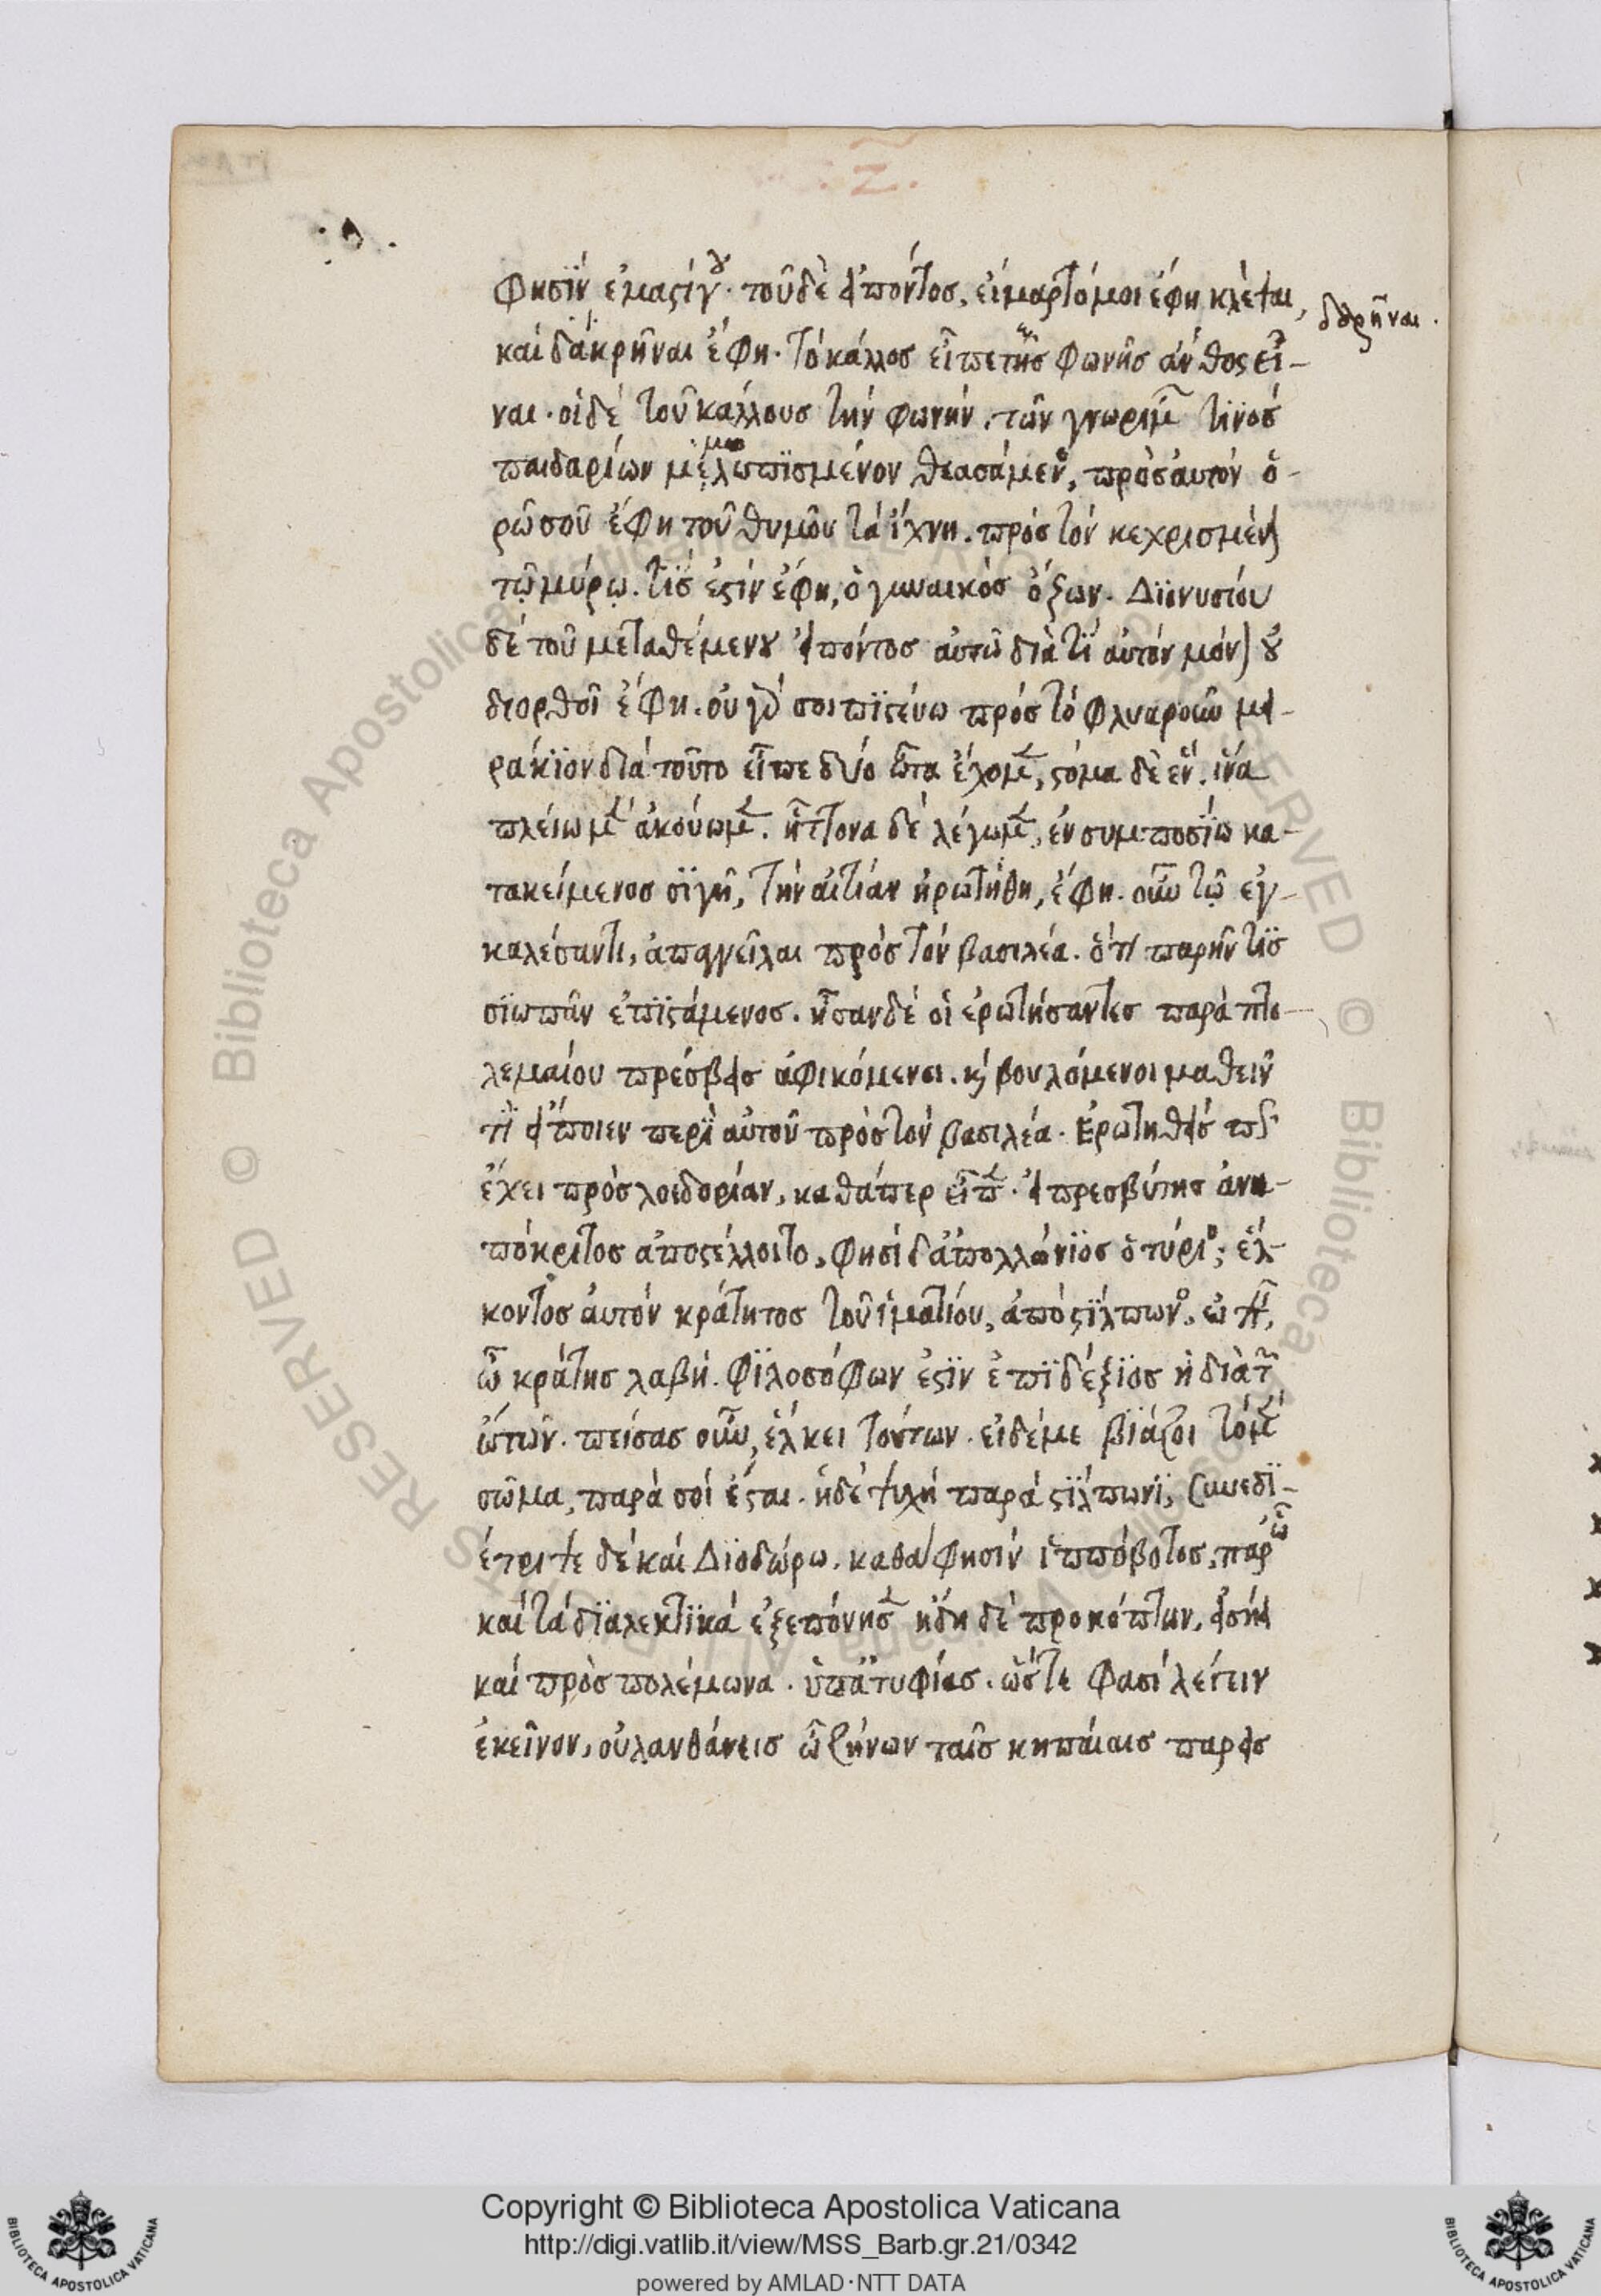 .Ζ.
φησὶν ἐμαστίγου· τοῦ δὲ εἰπόντος, εἵμαρτό μοι ἔφη κλέψαι,
δαρῆναι.
καὶ δακρῆναι ἔφη· τὸ κάλλος εἶπε τῆς φωνῆς ἄνθος εἶ-
ναι· οἱ δὲ τοῦ κάλλους τὴν φωνήν. τῶν γνωρίμων τινὸς
παιδαρίων μεμωλωπισμένον θεασάμενος, πρὸς αὐτὸν ὁ-
ρῶ σοῦ ἔφη τοῦ θυμοῦ τὰ ἴχνη. πρὸς τὸν κεχρισμένον
τῷ μύρῳ. τίς ἐστὶν ἔφη, ὁ γυναικὸς ὄζων. Διονυσίου
δὲ τοῦ μεταθεμένου εἰπόντος αὐτῶ διὰ τί αὐτὸν μόνον οὐ
διορθοῖ ἔφη. οὐ γάρ σοι πιστεύω πρὸς τὸ φλυαροῦν μει-
ράκιον διὰ τοῦτο εἶπε δύο ὦτα ἔχομεν, στόμα δὲ ἕν. ἵνα
πλείω μὲν ἀκούωμεν. ἥττονα δὲ λέγωμεν, ἐν συμποσίω κα-
τακείμενος σιγῆ, τὴν αἰτίαν ἠρωτήθη, ἔφη. οὖν τῷ ἐγ-
καλέσαντι, ἀπαγγεῖλαι πρὸς τὸν βασιλέα. ὅτι παρῆν τὶς
σιωπᾶν ἐπιστάμενος. ἦσαν δὲ οἱ ἐρωτήσαντες παρὰ πτο-
λεμαίου πρέσβεις ἀφικόμενοι. καὶ βουλόμενοι μαθεῖν
τί εἴποιεν περὶ αὐτοῦ πρὸς τὸν βασιλέα. Ἐρωτηθεὶς πῶς
ἔχει πρὸς λοιδορίαν, καθάπερ εἶπεν. εἰ πρεσβύτης ἀνα-
πόκριτος ἀποστέλλοιτο, φησὶ δ ἀπολλώνιος ὁ τύριος; ἕλ-
κοντος αὐτὸν κράτητος τοῦ ἱματίου, ἀπὸ στίλπωνος,
ὦ κράτης λαβὴ. φιλοσόφων ἐστὶν ἐπιδέξιος ἡ διὰ τῶν
ὤτων. πείσας οὖν, ἕλκει τούτων. εἰ δέ με βιάζοι τὸ μὲν
σῶμα, παρὰ σοὶ ἔσται. ἡ δὲ ψυχὴ παρὰ στίλπωνι, συνεδι-
έτριψε δὲ καὶ Διοδώρω. καθά φησιν ἱππόβοτος, παρ ὧ
καὶ τὰ διαλεκτικὰ ἐξεπόνησεν ἤδη δὲ προκόπτων, εἰσήει
καὶ πρὸς πολέμωνα. ὑπ ἀτυφίας. ὥστε φασὶ λέγειν
ἐκεῖνον, οὐ λανθάνεις ὦ ζήνων ταῖς κηπαίαις παρεις
Copyright © Biblioteca Apostolica Vaticana
http://digi.vatlib.it/view/MSS_Barb.gr.21/0342
powered by AMLAD·NTT DATA